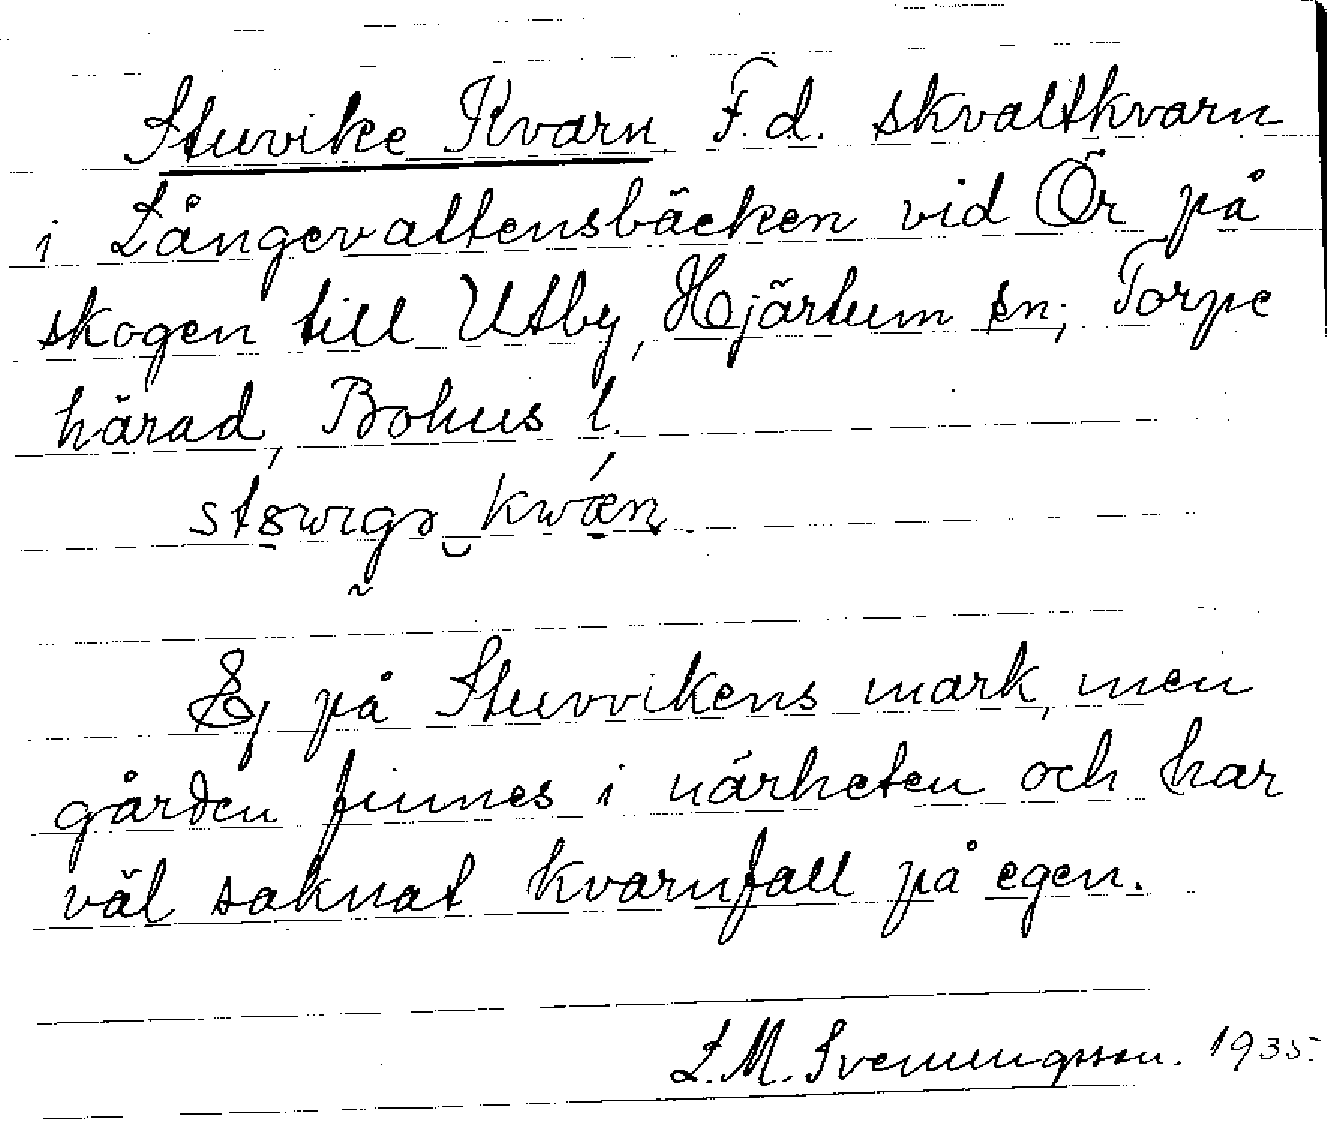 Stuvike Kvarn F.d. skvaltkvarn
i Långevattensbäcken vid Ör på
skogen till Utby, Hjärtum sn; Torpe
härad, Bohus l.
Ej på Stuvvikens mark, men
gården finnes i närheten och har
väl saknat kvarnfall på egen.
L.M. Svenungsson. 1935.